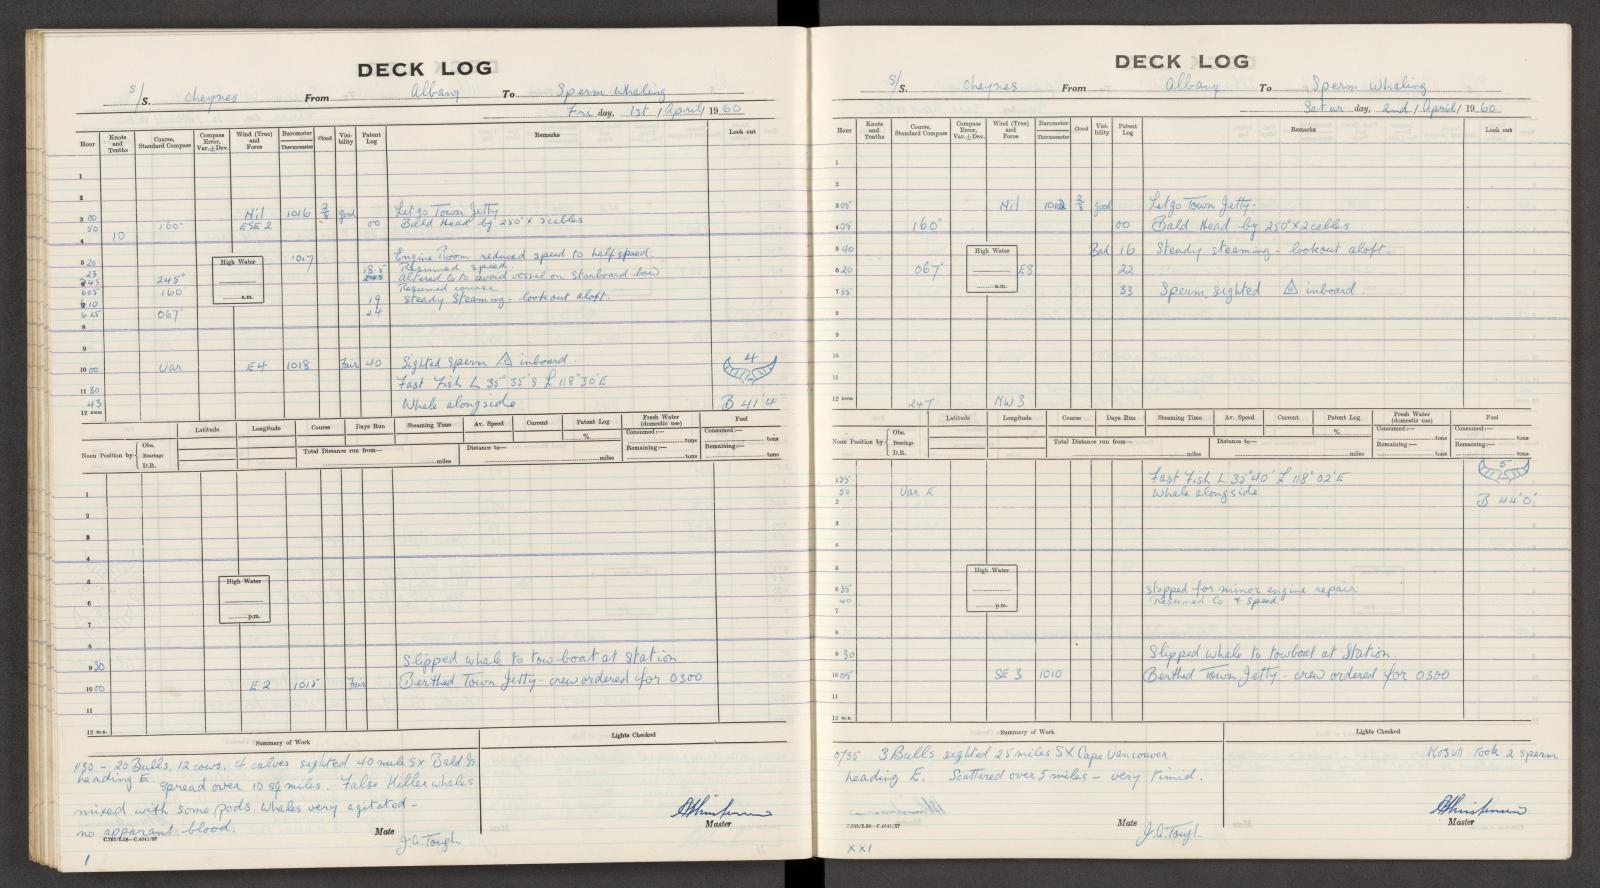 DECK LOG
S/S. Cheynes From Albany To Sperm Whaling
Fri day, 1st / April / 1960
Hour
Knots and Tenths
Course, Standard Compass
Compass Error, Var.±Dev.
Wind (True) and Force
Barometer
Thermometer
Cloud
Visibility
Patent Log
Remarks
Look out
1
2
3 00 Nil 1016 2/8 good Let go Town Jetty
50 160° ESE 2 00 Bald Head by 250° x 3 cables
4 10
5 20 1017 Engine Room reduced speed to half speed.
23 18.5 Resumed speed.
45 245° Altered Co to avoid vessel on Starboard bow
605 160 Resumed course
6 10 19 Steady Steaming - lookout aloft.
6 25 067° 24
High Water
a.m.
8
9
10 00 Var E4 1018 Fair 40 Sighted Sperm △ inboard. 4
11 30 Fast Fish L 35° 35's L 118° 30'E
43 Whale alongside B 41'4
12 noon
Noon Position by
Obs.
Bearings
D.R.
Latitude
Longitude
Course
Days Run
Steaming Time
Av. Speed
Current
Patent Log
%
Fresh Water (domestic use)
Fuel
Total Distance run from—
miles
Distance to—
miles
Consumed:—
tons
Remaining:—
tons
Consumed:—
tons
Remaining:—
tons
1
2
3
4
5
6
7
8
High Water
p.m.
9 30 Slipped whale to tow boat at Station
10 00 E 2 1015 Fair Berthed Town Jetty - crew ordered for 0300
11
12 m.n.
Summary of Work
Lights Checked
1130 - 20 Bulls, 12 cows, 4 calves sighted 40 miles Sx Bald Is
heading E. spread over 10 sq miles. False Killer whales
mixed with some pods. Whales very agitated -
no apparant blood.
Mate
J.A. Tough
Master
C.703/2.58—C.4041/57
1
DECK LOG
S/S. Cheynes From Albany To Sperm Whaling
Satur day, 2nd / April / 1960
Hour
Knots and Tenths
Course, Standard Compass
Compass Error, Var.±Dev.
Wind (True) and Force
Barometer
Thermometer
Cloud
Visibility
Patent Log
Remarks
Look out
1
2
3 05 Nil 1012 2/8 good Let go Town Jetty-
4 05 160° 00 Bald Head by 250° x 2 cables
5 40 Bad 16 Steady steaming - lookout aloft.
6 20 067° E3 22
7 35 33 Sperm sighted △ inboard
High Water
a.m.
8
9
10
11
12 noon 247 NW 3
Noon Position by
Obs.
Bearings
D.R.
Latitude
Longitude
Course
Days Run
Steaming Time
Av. Speed
Current
Patent Log
%
Fresh Water (domestic use)
Fuel
Total Distance run from—
miles
Distance to—
miles
Consumed:—
tons
Remaining:—
tons
Consumed:—
tons
Remaining:—
tons
1 35 Fast Fish L 35° 40' L 118° 02' E 5
50 Var E Whale alongside B 44'0"
2
3
4
5
High Water
p.m.
6 35 Stopped for minor engine repair
40 Resumed Co & Speed
7
8
9 30 Slipped whale to towboat at Station.
10 05 SE 3 1010 Berthed Town Jetty - crew ordered for 0300
11
12 m.n.
Summary of Work
Lights Checked
0735 3 Bulls sighted 25 miles Sx Cape Vancouver
heading E. Scattered over 5 miles - very timid.
Kos VII took 2 sperm
Mate
J.A. Tough
Master
C.703/2.58—C.4041/57
XXI